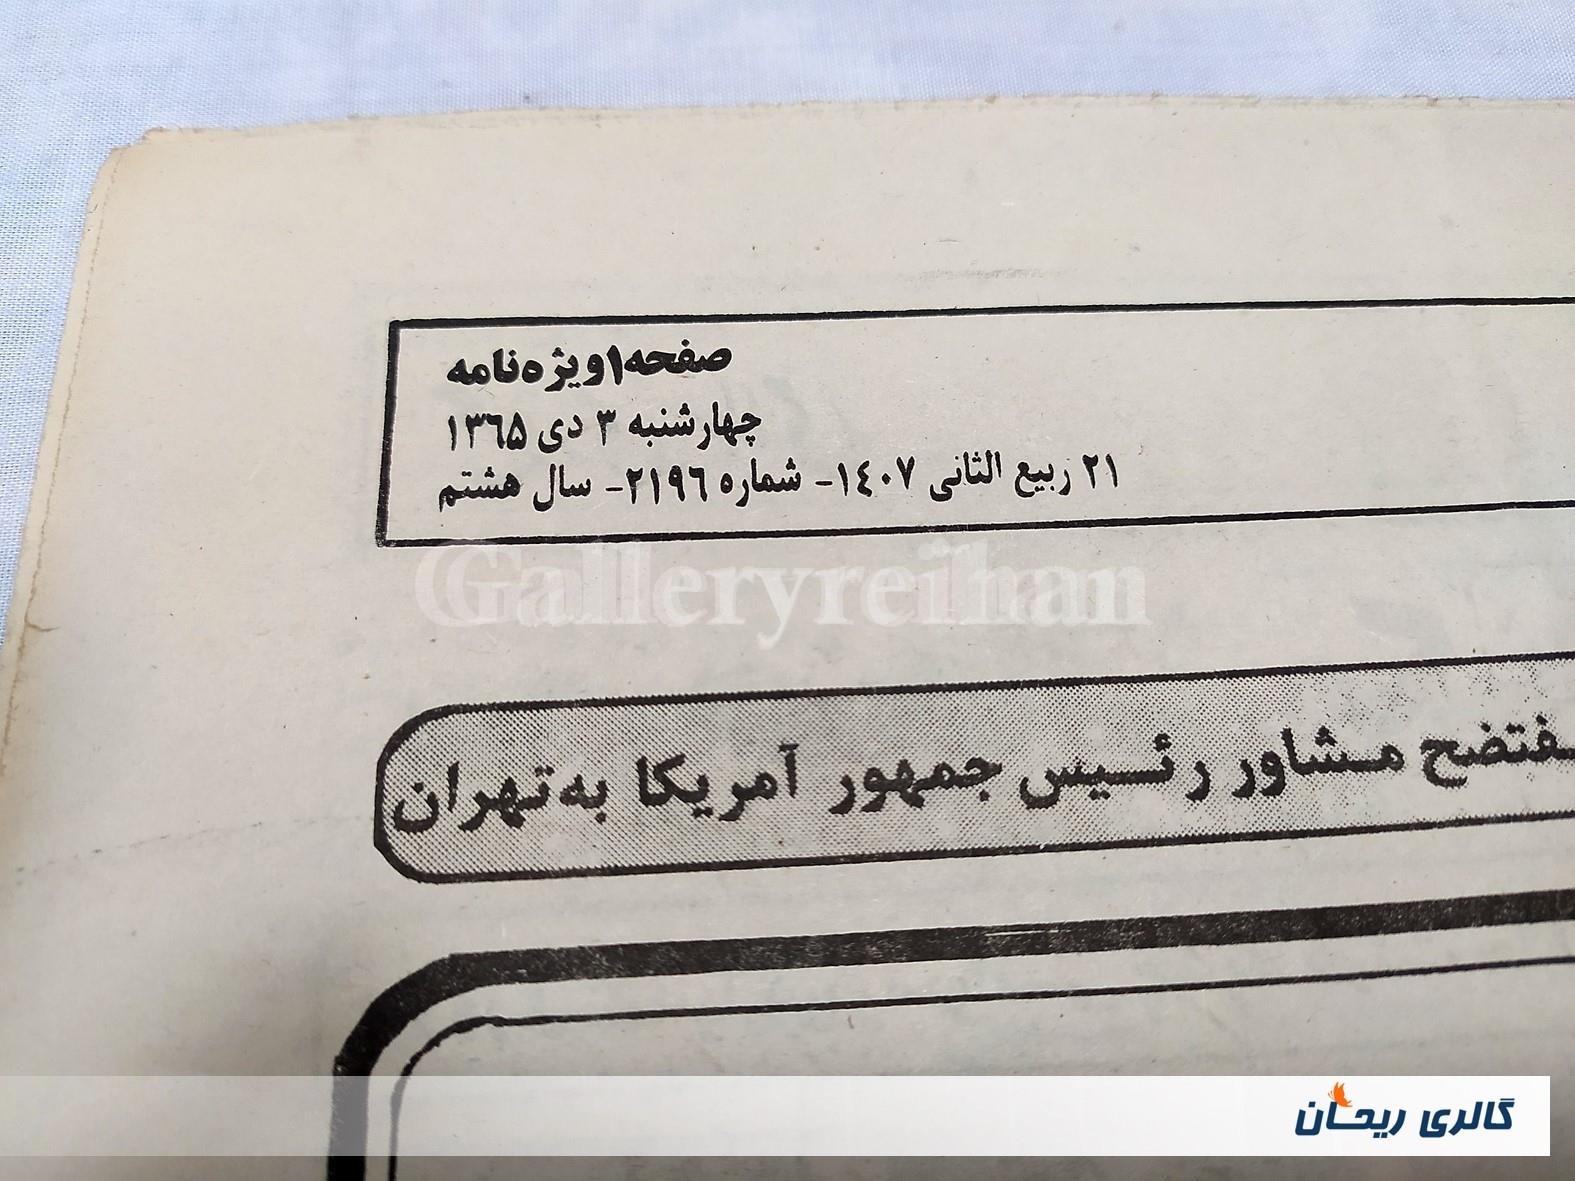 صفحه۱ویژه‌نامه
چهارشنبه ۳ دی ۱۳٦۵
۲۱ ربیع الثانی ۱٤۰۷- شماره ۲۱۹٦- سال هشتم
Galleryreihan
مشاور رئیس جمهور آمریکا به‌تهران
گالری ریحان